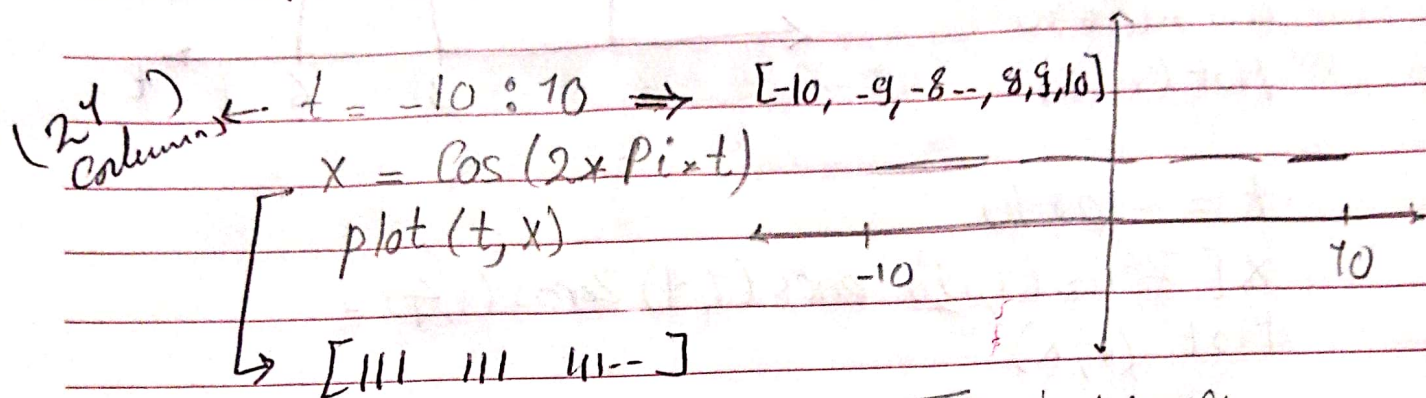 (21 columns) ← t = -10 : 10 ⇒ [-10, -9, -8--, 8,9,10]
x = Cos (2* Pi*t)
plot (t, x)
-10 10
[111 111 111--]